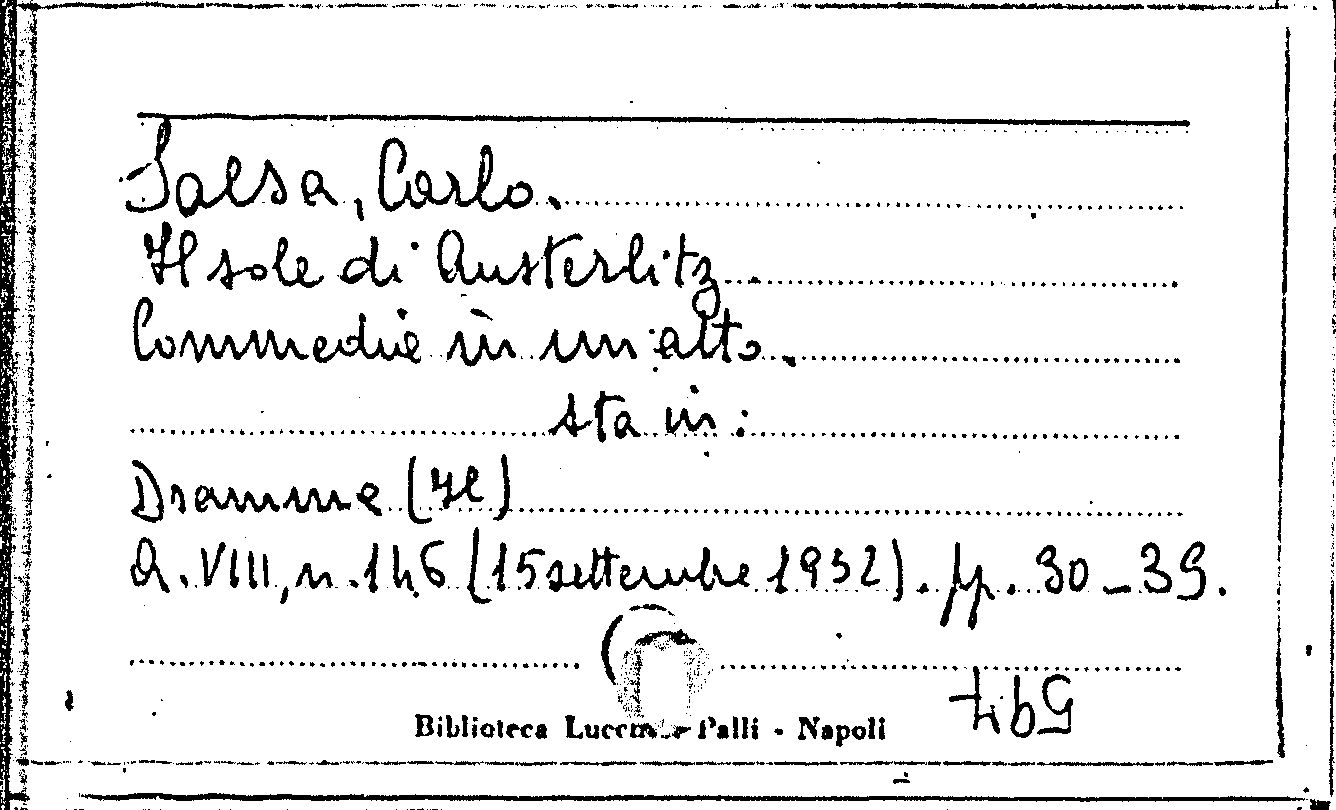 Salsa, Carlo.
Il sole di Austerlitz.
Commedia in un atto.
sta in:
Dramma (Il)
A. VIII, n. 146 (15 settembre 1932). pp. 30-39.
Biblioteca Lucchesi Palli - Napoli